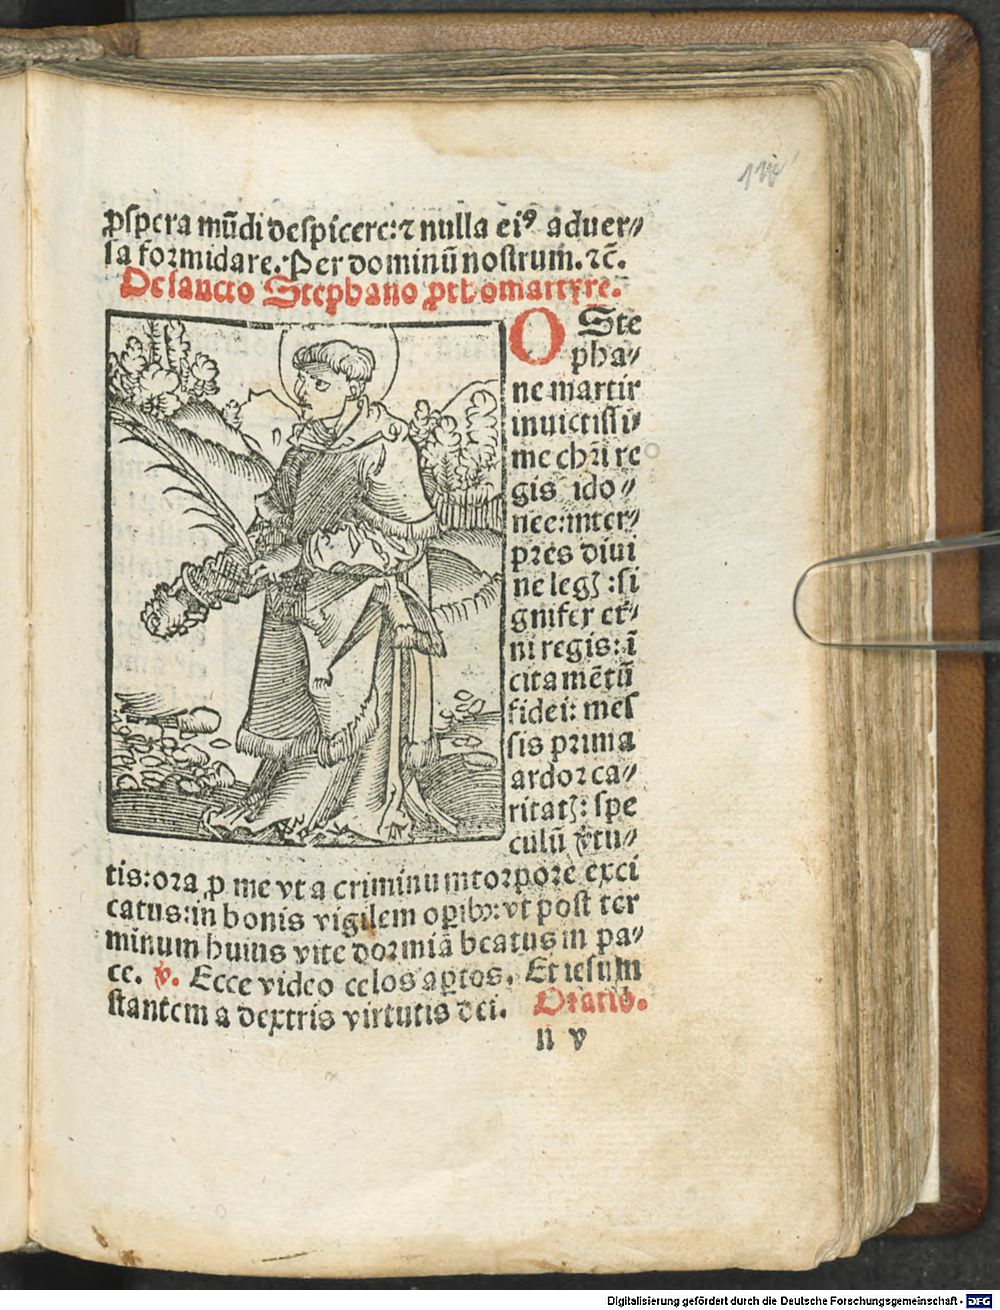 ꝓspera mūdi despicere: ⁊ nulla ei⁹ aduer⸗
sa formidare. Per dominū nostrum. ⁊c̄.
De sancto Stephano ꝓthomartyre.
O Ste
pha⸗
ne martir
inuictissi⸗
me chr̄i re
gis ido⸗
nee: inter⸗
pres diui
ne legꝭ: si
gnifer et̄⸗
ni regis: ī
citamētū
fidei: mes
sis prima
ardor ca⸗
ritatꝭ: spe
culū v̄tu⸗
tis: ora ꝓ me vt a criminum torpore exci
catus: in bonis vigilem oꝑibꝰ: vt post ter
minum huius vite dormiā beatus in pa⸗
ce. ℣. Ecce video celos aꝑtos. Et iesum
stantem a dextris virtutis dei. Oratio.
n v
Digitalisierung gefördert durch die Deutsche Forschungsgemeinschaft - DFG